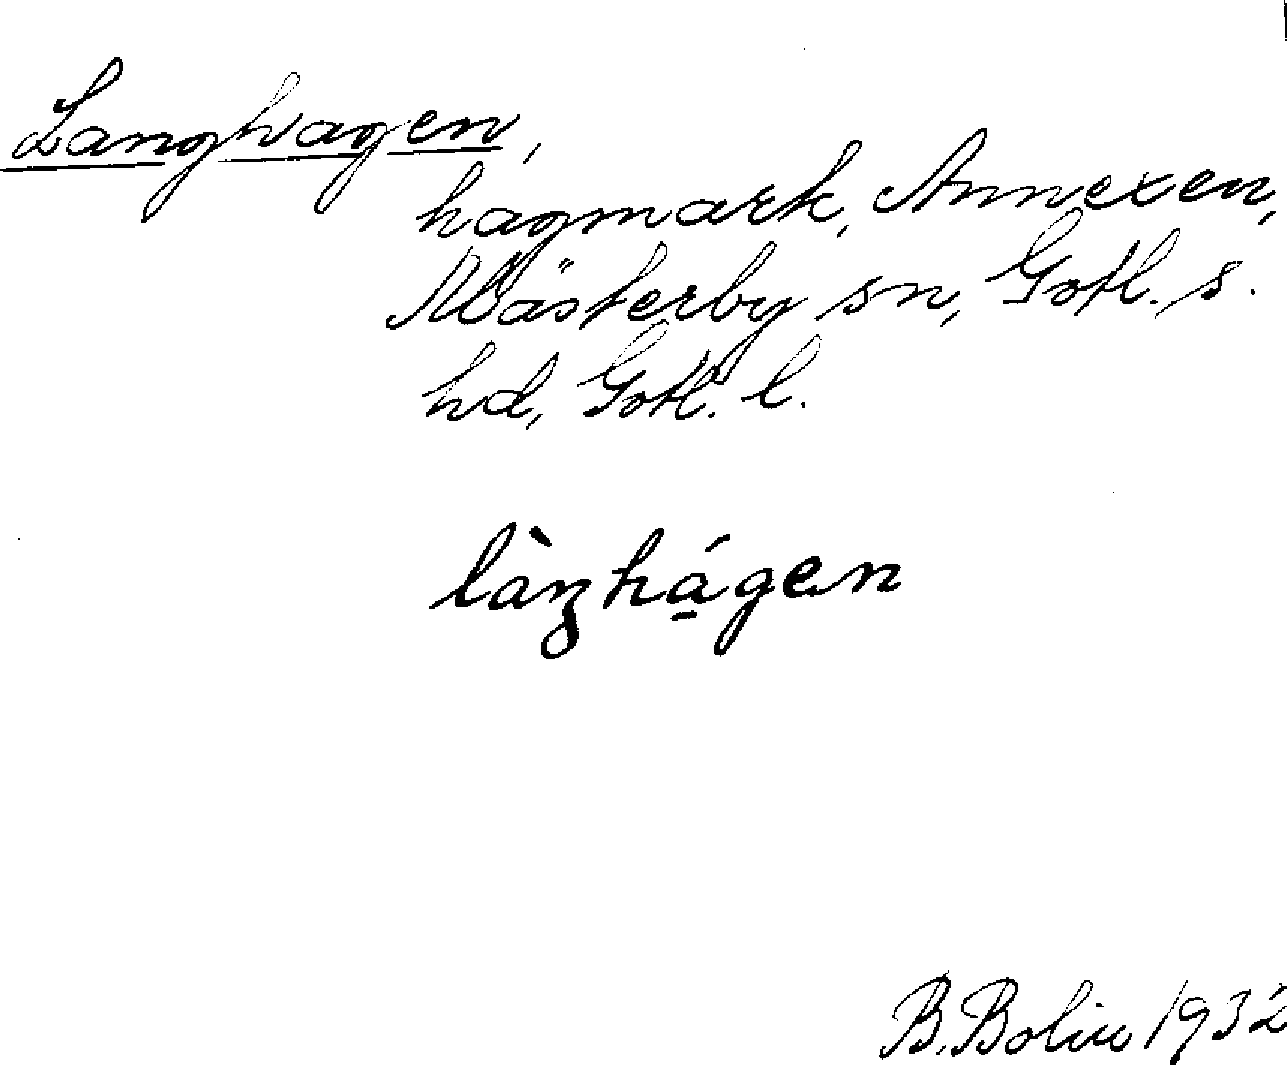 Langhagen,
hagmark, Annexen,
Mästerby sn, Gotl. s.
hd, Gotl. l.
làŋhá̱gen
B. Bolin 1932